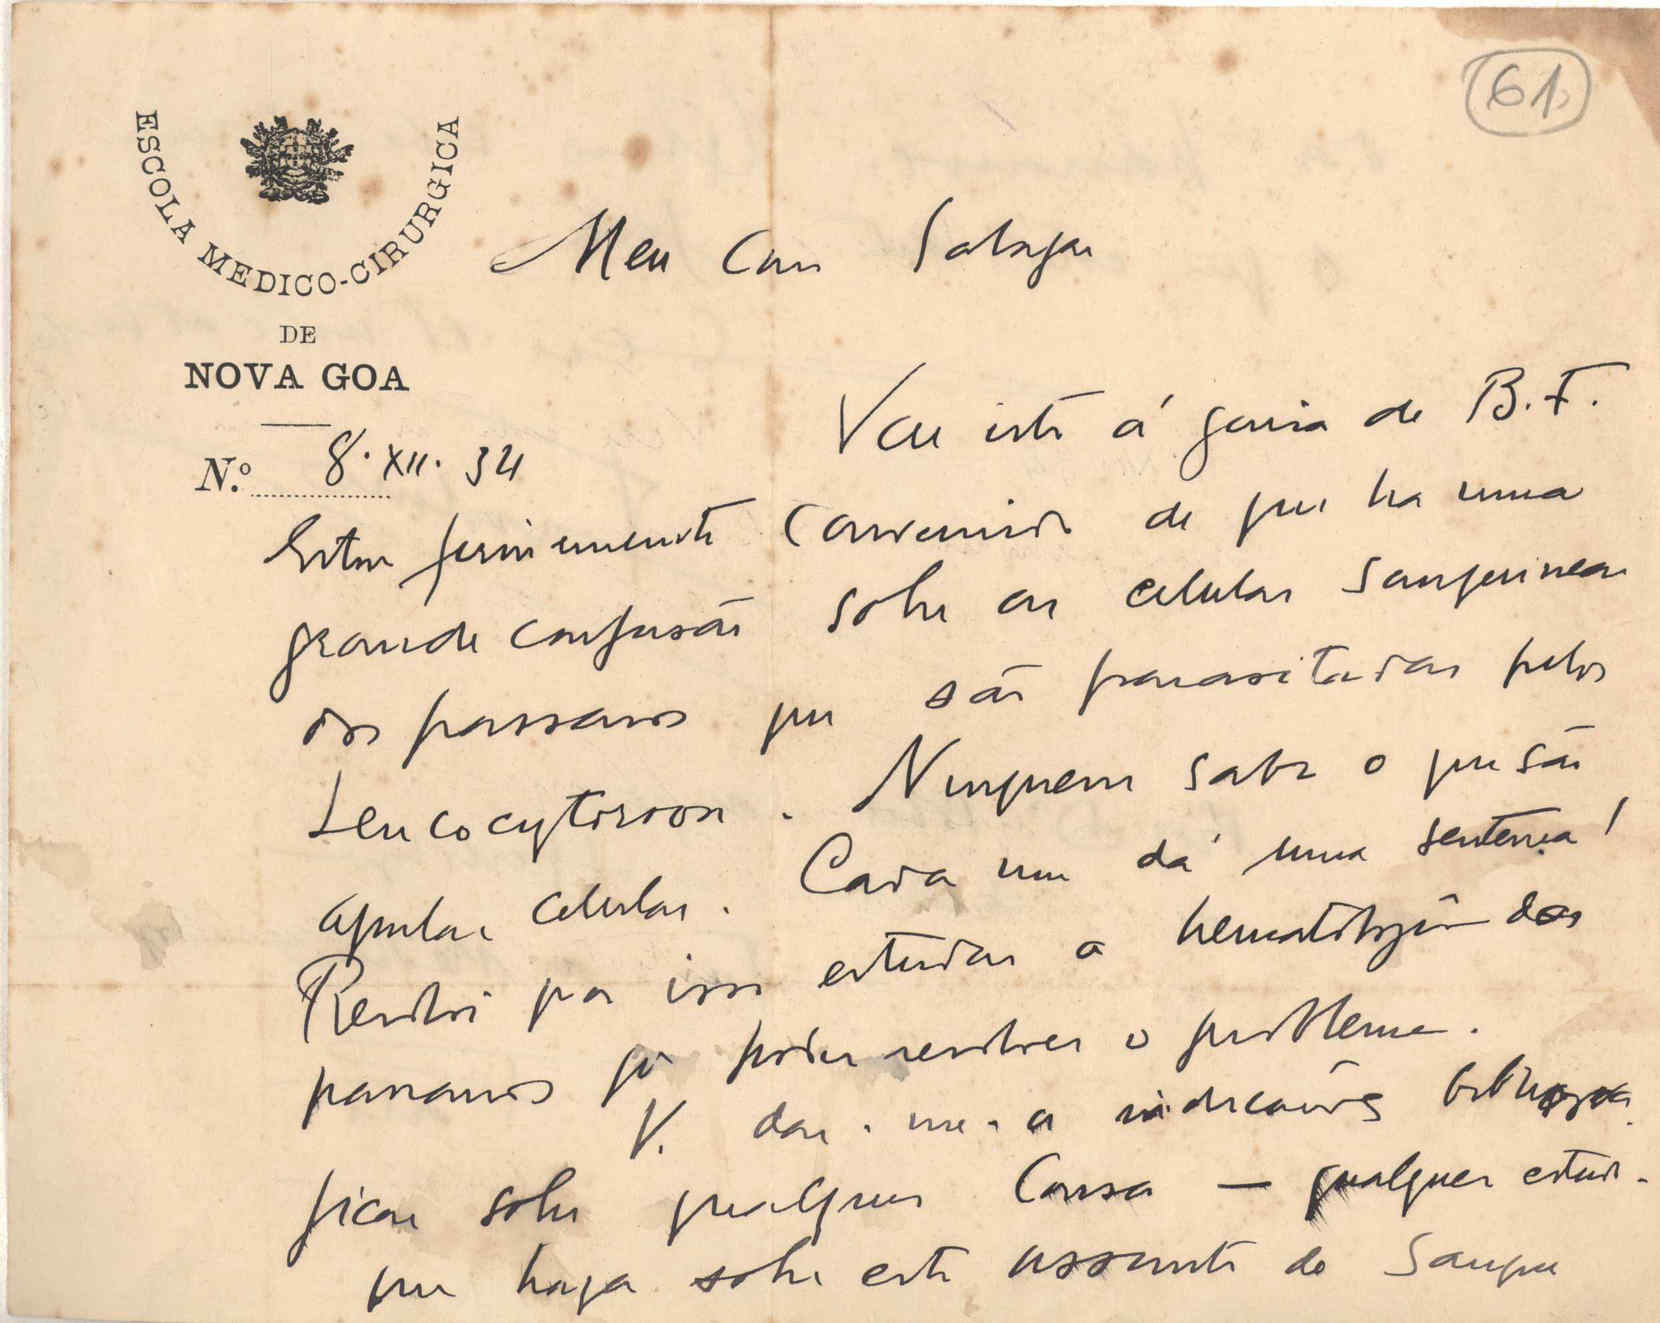 61
ESCOLA MEDICO-CIRURGICA
DE
NOVA GOA
N.º 8. XII. 34
Meu Caro Salazar
Vou isto á guisa de B.F.
Estou firmemente convencido de que ha uma
grande confusão sobre as celulas sanguineas
dos passaros que são parasitadas pelos
Leucocytozoon. Ninguem sabe o que são
aquelas celulas. Cada um dá uma sentença!
Resolvi por isso estudar a hematologia dos
passaros pª poder resolver o problema.
V. dar-me-a indicações bibliogra
ficas sobre qualquer cousa — qualquer estudo
que haja sobre este assunto do sangue